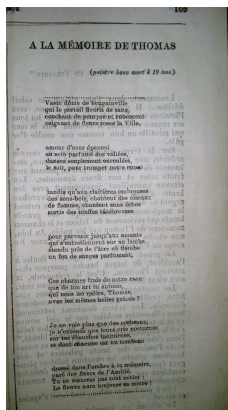 109
A LA MÉMOIRE DE THOMAS
(peintre hova mort à 29 ans.)
Vaste dôme de bougainville
qui le portail fleurit de sang,
couchant de pourpre et
ceignant de fleurs roses la Ville,
amour d'azur épanoui
au sein parfumé des vallées,
danses souplement enroulées,
le soir, pour tromper notre ennui
tandis qu'aux clairières ombreuses
des sous-bois, chantent des oiseaux
de flamme, chantent sans échos
sortis des touffes ténébreuses
pour parvenir jusqu'aux amants
qui s'entretiennent sur un lambe
étendu près de l'âtre où flambe
un feu de songes parfumant,
Ces charmes frais de notre race
que de ton art tu animas,
qui nous les redira, Thomas,
avec les mêmes belles grâces ?
Je ne vois plus que des corbeaux,
je n'entends que leurs cris nocturnes
sur les ébauches taciturnes,
et dont chacune est un tombeau
dressé dans l'ombre à ta mémoire,
paré des fleurs de l'Amitié.
Tu ne mourras pas tout entier :
Le Beuvre aura toujours sa moire !